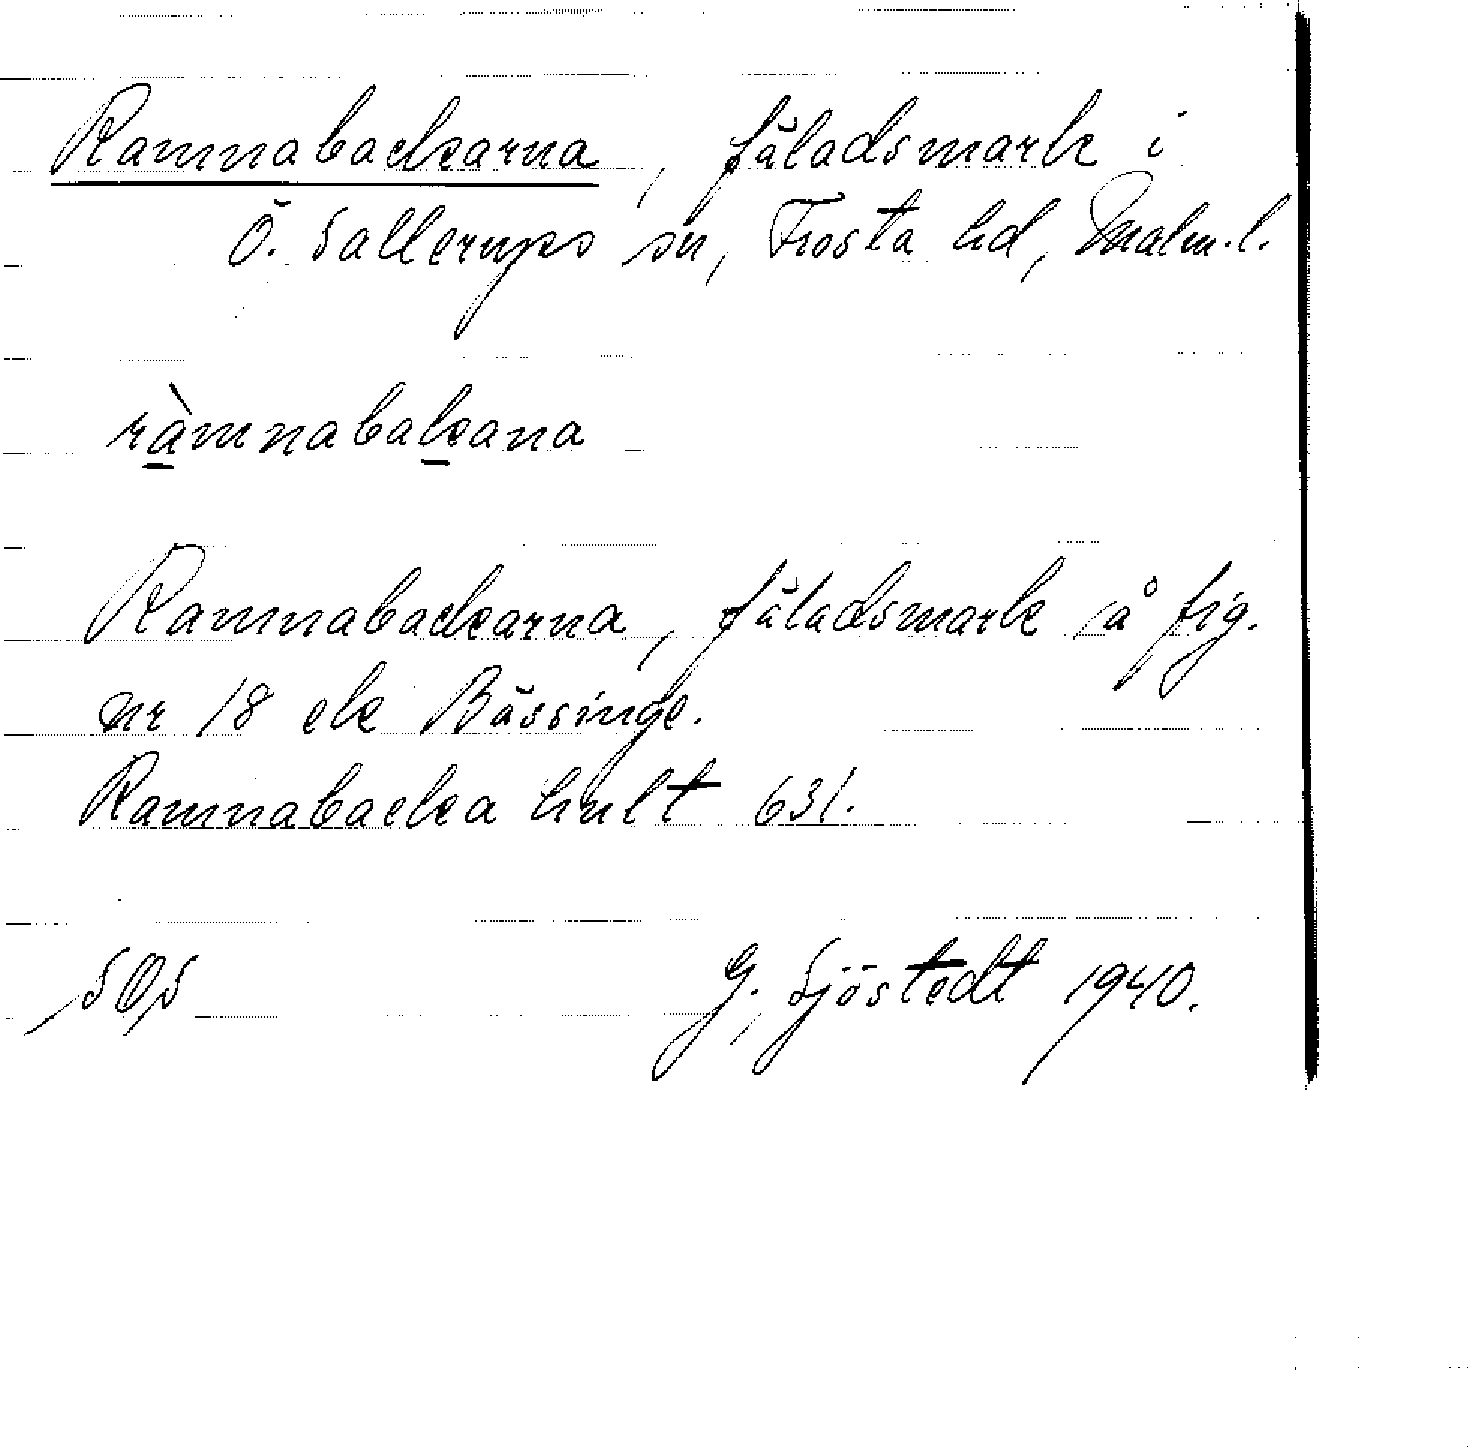 Ramnabackarna, fäladsmark i
Ö. Sallerups sn, Frosta hd, Malm. l.
ràmnabakana
Ramnabackarna, fäladsmark å fig.
nr 18 ek Bässinge.
Ramnabacka hult 631.
SOS G. Sjöstedt 1940.